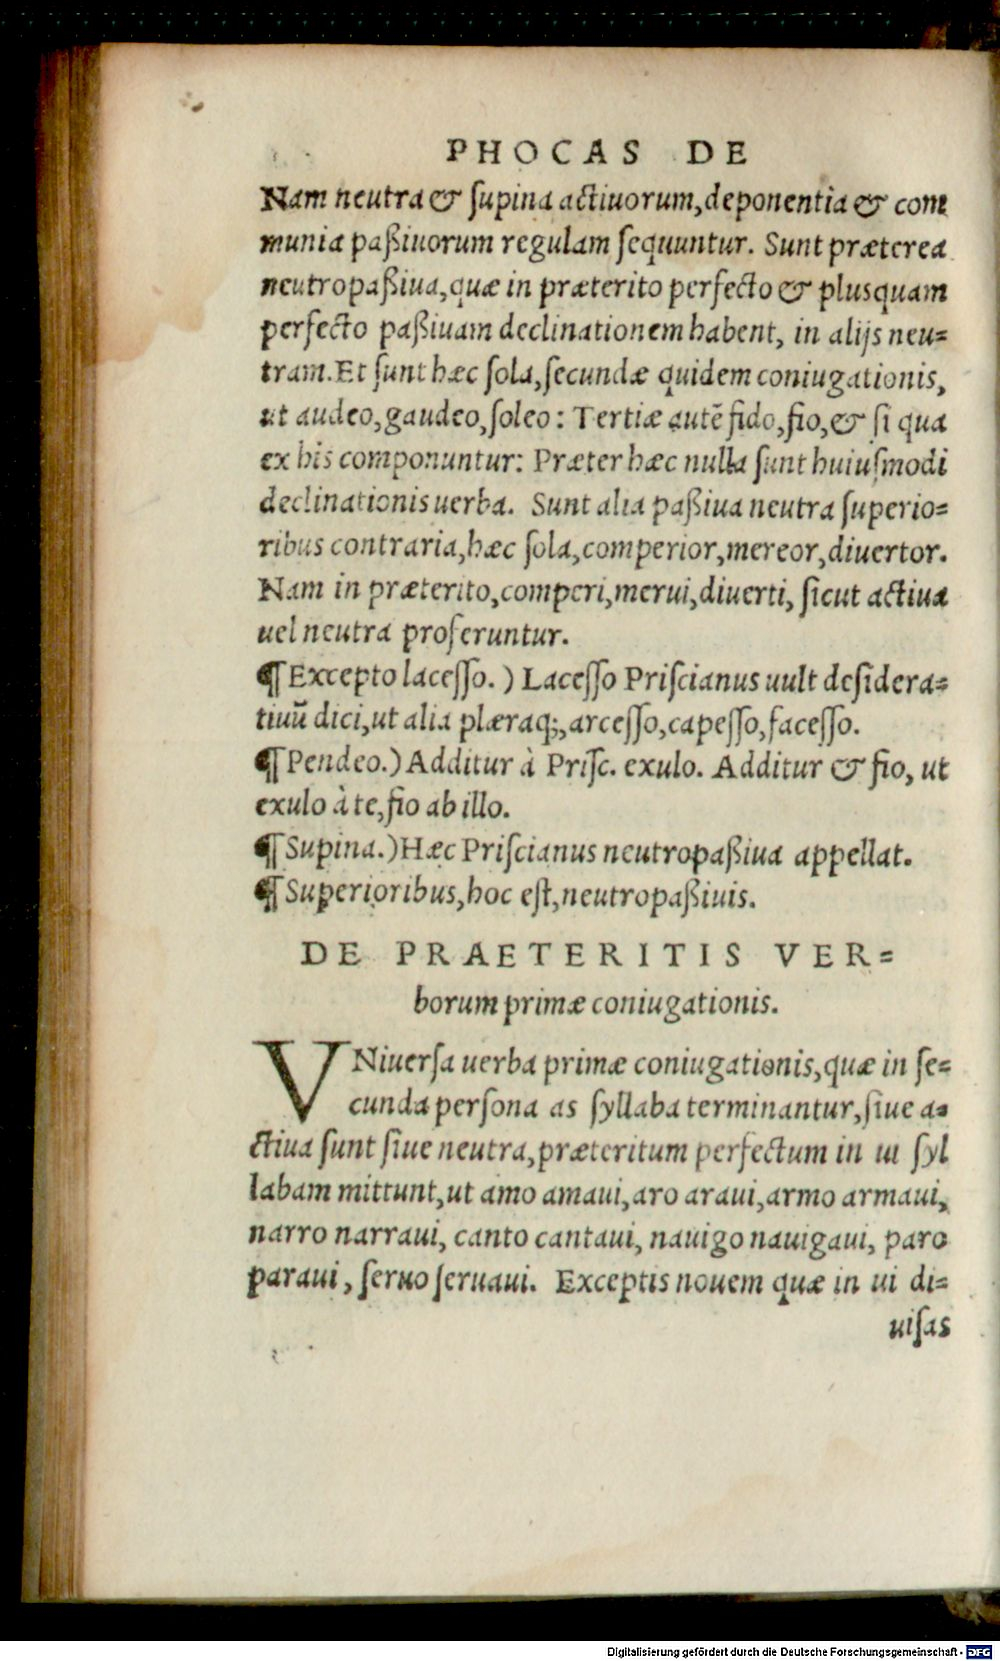 PHOCAS DE
Nam neutra & ſupina actiuorum, deponentia & com
munia paßiuorum regulam ſequuntur. Sunt præterea
neutropaßiua, quæ in præterito perfecto & plusquam
perfecto paßiuam declinationem habent, in alijs neu=
tram. Et ſunt hæc ſola, ſecundæ quidem coniugationis,
ut audeo, gaudeo, ſoleo: Tertiæ autẽ fido, fio, & ſi qua
ex his componuntur: Præter hæc nulla ſunt huiuſmodi
declinationis uerba. Sunt alia paßiua neutra ſuperio=
ribus contraria, hæc ſola, comperior, mereor, diuertor.
Nam in præterito, comperi, merui, diuerti, ſicut actiua
uel neutra proferuntur.
¶ Excepto laceſſo.) Laceſſo Priſcianus uult deſidera=
tiuũ dici, ut alia plæraq;, arceſſo, capeſſo, faceſſo.
¶ Pendeo.) Additur à Priſc. exulo. Additur & fio, ut
exulo à te, fio ab illo.
¶ Supina.) Hæc Priſcianus neutropaßiua appellat.
¶ Superioribus, hoc eſt, neutropaßiuis.
DE PRAETERITIS VER=
borum primæ coniugationis.
VNiuerſa uerba primæ coniugationis, quæ in ſe=
cunda perſona as ſyllaba terminantur, ſiue a=
ctiua ſunt ſiue neutra, præteritum perfectum in ui ſyl
labam mittunt, ut amo amaui, aro araui, armo armaui,
narro narraui, canto cantaui, nauigo nauigaui, paro
paraui, ſeruo ſeruaui. Exceptis nouem quæ in ui di=
uiſas
Digitalisierung gefördert durch die Deutsche Forschungsgemeinschaft - DFG